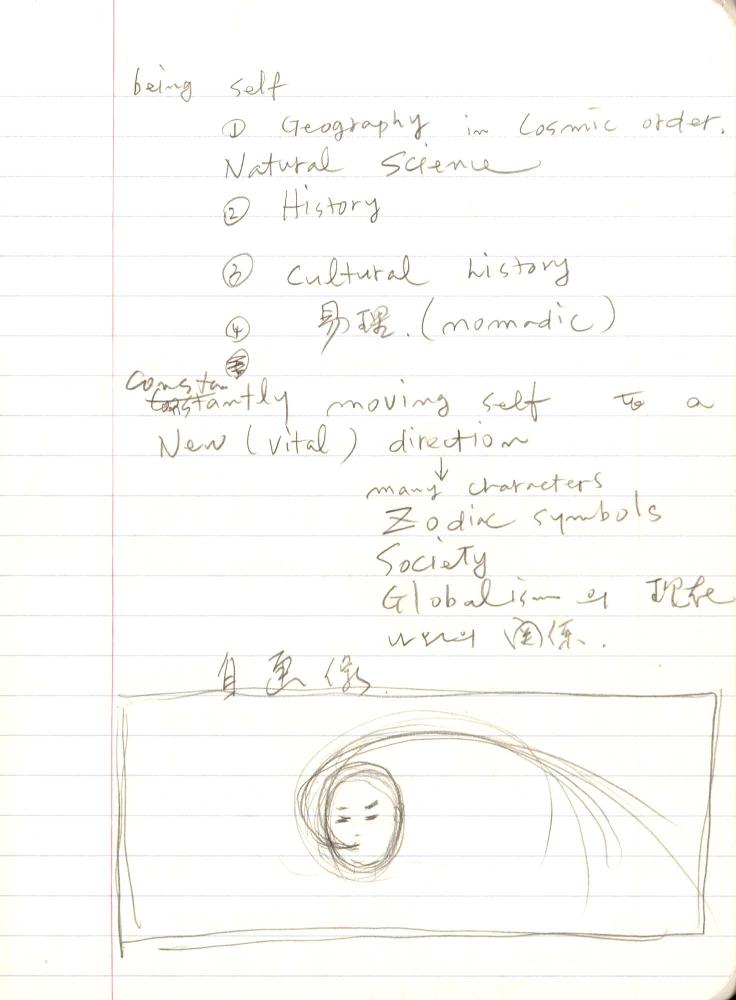 being self
① Geography in Cosmic order.
Natural Science
② History
③ Cultural history
④ 易理. (nomadic)
Constantly moving self to a
New (vital) direction
↓
many characters
Zodiac symbols
Society
Globalism의 現在
關係.
自画像.